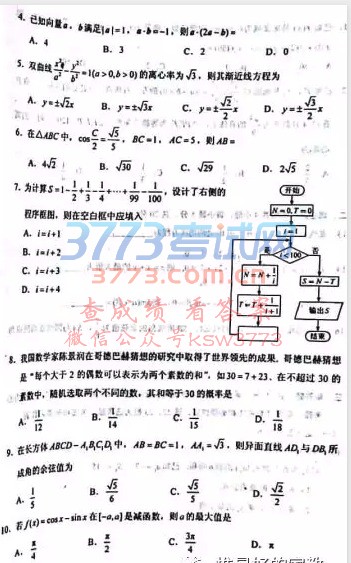 4. 已知向量a，b满足|a|=1，a·b=-1，则a·(2a-b)=
A. 4 B. 3 C. 2 D. 0
5. 双曲线x²/a²-y²/b²=1(a>0,b>0)的离心率为√3，则其渐近线方程为
A. y=±√2x B. y=±√3x C. y=±√2/2x D. y=±√3/2x
6. 在△ABC中，cosC/2=√5/5，BC=1，AC=5，则AB=
A. 4√2 B. √30 C. √29 D. 2√5
7. 为计算S=1-1/2+1/3-1/4+…+1/99-1/100，设计了右侧的
程序框图，则在空白框中应填入
A. i=i+1
B. i=i+2
C. i=i+3
D. i=i+4
开始
N=0,T=0
i=1
是 i<100 否
N=N+1/i
S=N-T
T=T+1/(i+1)
输出S
结束
3773考试网
3773.com.cn
查成绩 看答案
微信公众号ksw3773
8. 我国数学家陈景润在哥德巴赫猜想的研究中取得了世界领先的成果。哥德巴赫猜想
是“每个大于2的偶数可以表示为两个素数的和”，如30=7+23．在不超过30的
素数中，随机选取两个不同的数，其和等于30的概率是
A. 1/12 B. 1/14 C. 1/15 D. 1/18
9. 在长方体ABCD-A₁B₁C₁D₁中，AB=BC=1，AA₁=√3，则异面直线AD₁与DB₁所
成角的余弦值为
A. 1/5 B. √5/6 C. √5/5 D. √2/2
10. 若f(x)=cosx-sinx在[-a,a]是减函数，则a的最大值是
A. π/4 B. π/2 C. 3π/4 D. π